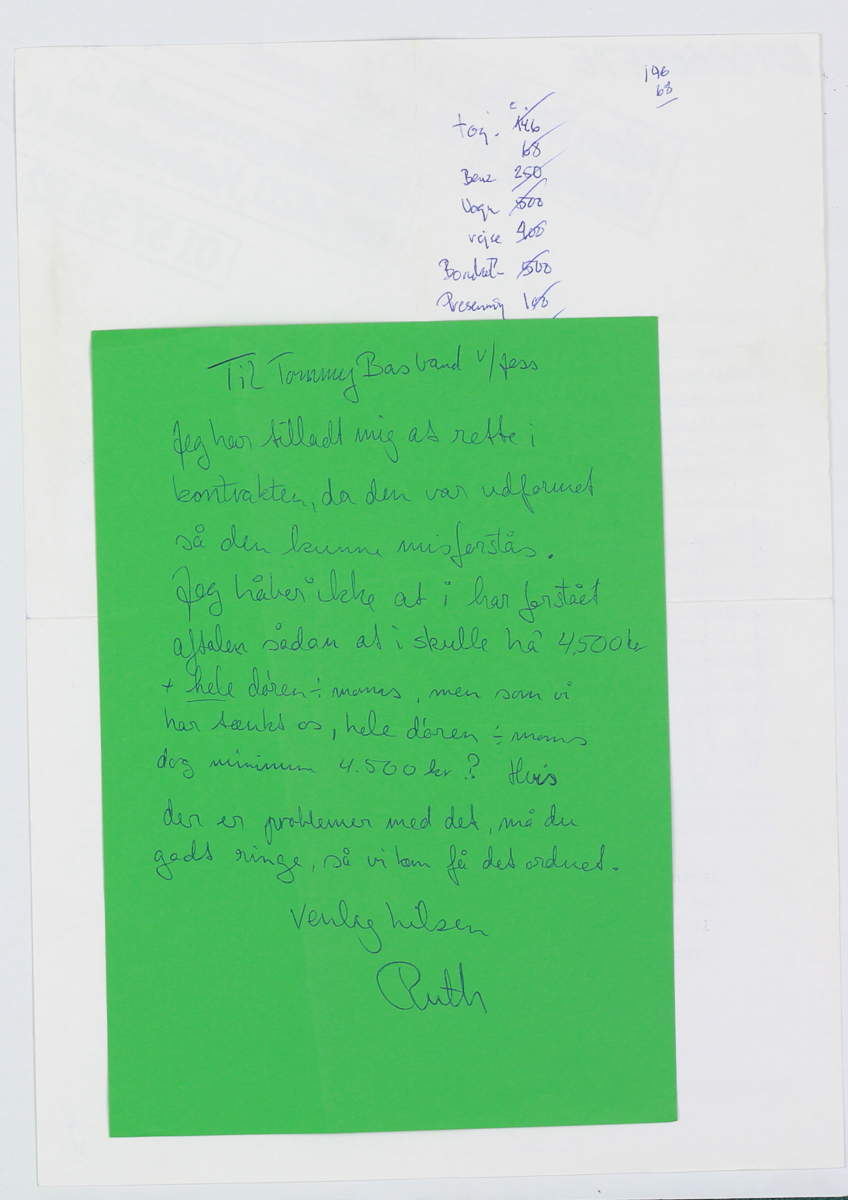 146
68
tog. 146
68
Benz 250
Vogn 500
vejee 400
500
Presenning 100
Til Tommy Bas band v/Jess
Jeg har tilladt mig at rette i
kontrakten, da den var udformet
så den kunne misforstås.
Jeg håber ikke at i har forstået
aftalen sådan at i skulle ha 4,500 kr
+ hele døren ÷ moms, men som vi
har tænkt os, hele døren ÷ moms
dog minimum 4.500 kr? Hvis
der er problemer med det, må du
godt ringe, så vi kan få det ordnet.
Venlig hilsen
Ruth